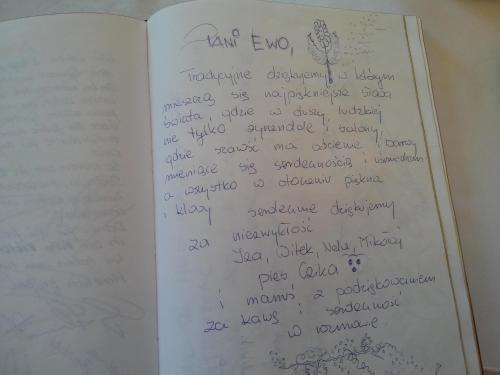 PANI EWO,
Tradycyjne dziękujemy w którym
mieszczą się najpiękniejsze słowa
świata, gdzie w duszy ludzkiej
nie tylko żyrandole i salony,
gdzie szarość ma odcienie barwy
mieniące się serdecznością i uśmiechem
a wszystko w otoczeniu piękna
i klasy serdecznie dziękujemy
za niezwykłość
Iza, Witek, Nela, Mikołaj
pies Czika
i mamś z podziękowaniem
za kawę i serdeczność
w rozmowie